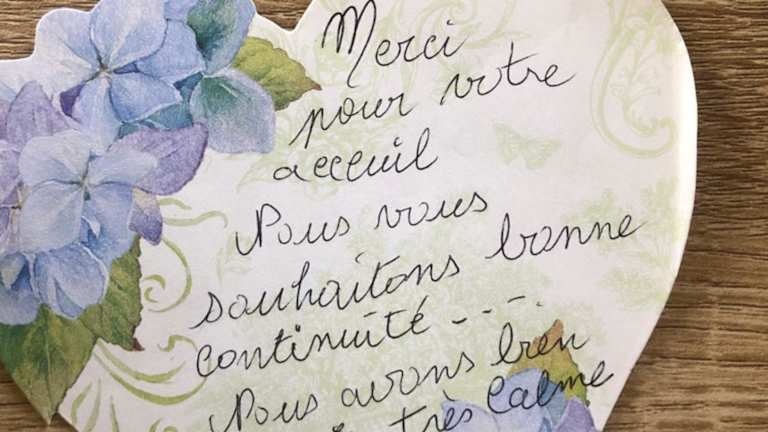 Merci
pour votre
acceuil
Nous vous
souhaitons bonne
continuité - - - -
Nous avons bien
très calme